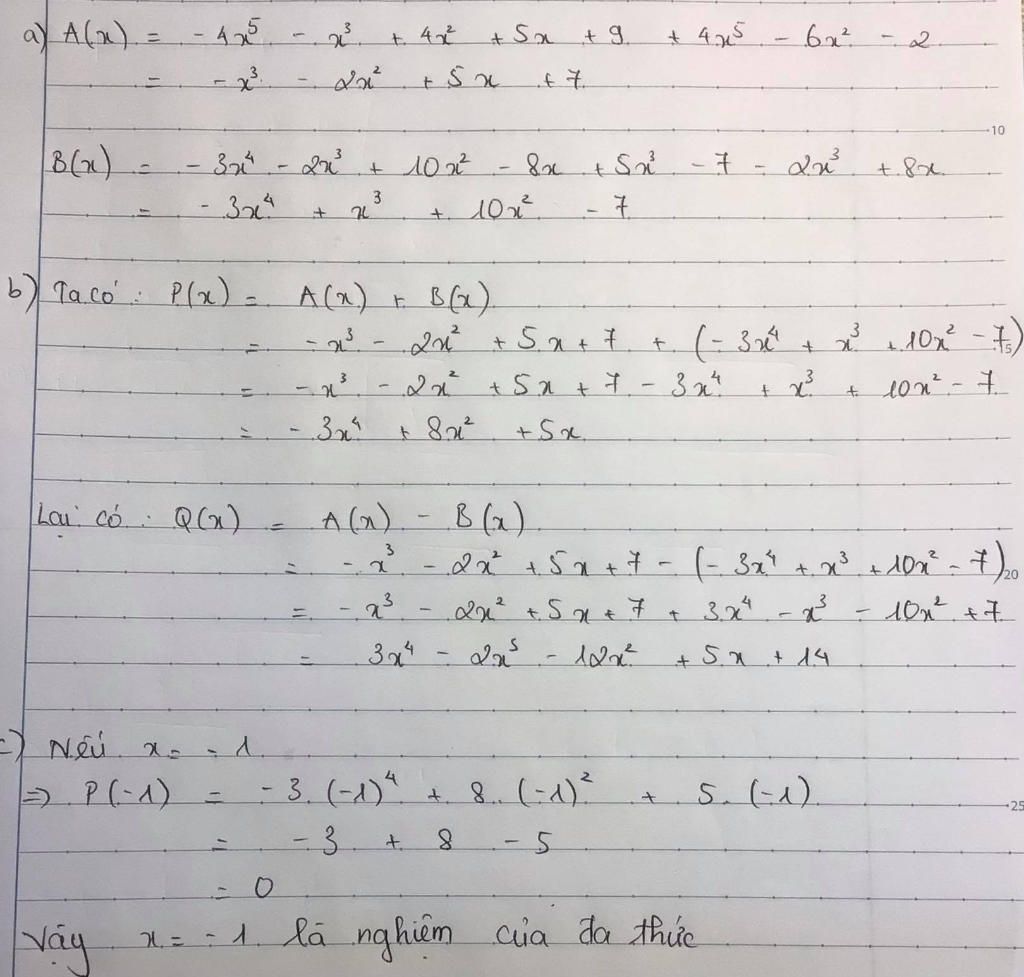 a) A(x) = - 4x⁵ - x³ + 4x² + 5x + 9 + 4x⁵ - 6x² - 2
= - x³ - 2x² + 5x + 7
10
B(x) = - 3x⁴ - 2x³ + 10x² - 8x + 5x³ - 7 - 2x³ + 8x
= - 3x⁴ + x³ + 10x² - 7
b) Ta có : P(x) = A(x) + B(x)
= - x³ - 2x² + 5x + 7 + (- 3x⁴ + x³ + 10x² - 7)
= - x³ - 2x² + 5x + 7 - 3x⁴ + x³ + 10x² - 7
= - 3x⁴ + 8x² + 5x
Lại có : Q(x) = A(x) - B(x)
= - x³ - 2x² + 5x + 7 - (- 3x⁴ + x³ + 10x² - 7) 20
= - x³ - 2x² + 5x + 7 + 3x⁴ - x³ - 10x² + 7
= 3x⁴ - 2x³ - 12x² + 5x + 14
c) Nếu x = - 1
=> P(-1) = - 3 . (-1)⁴ + 8 . (-1)² + 5 . (-1)
25
= - 3 + 8 - 5
= 0
Vậy x = - 1 là nghiệm của đa thức